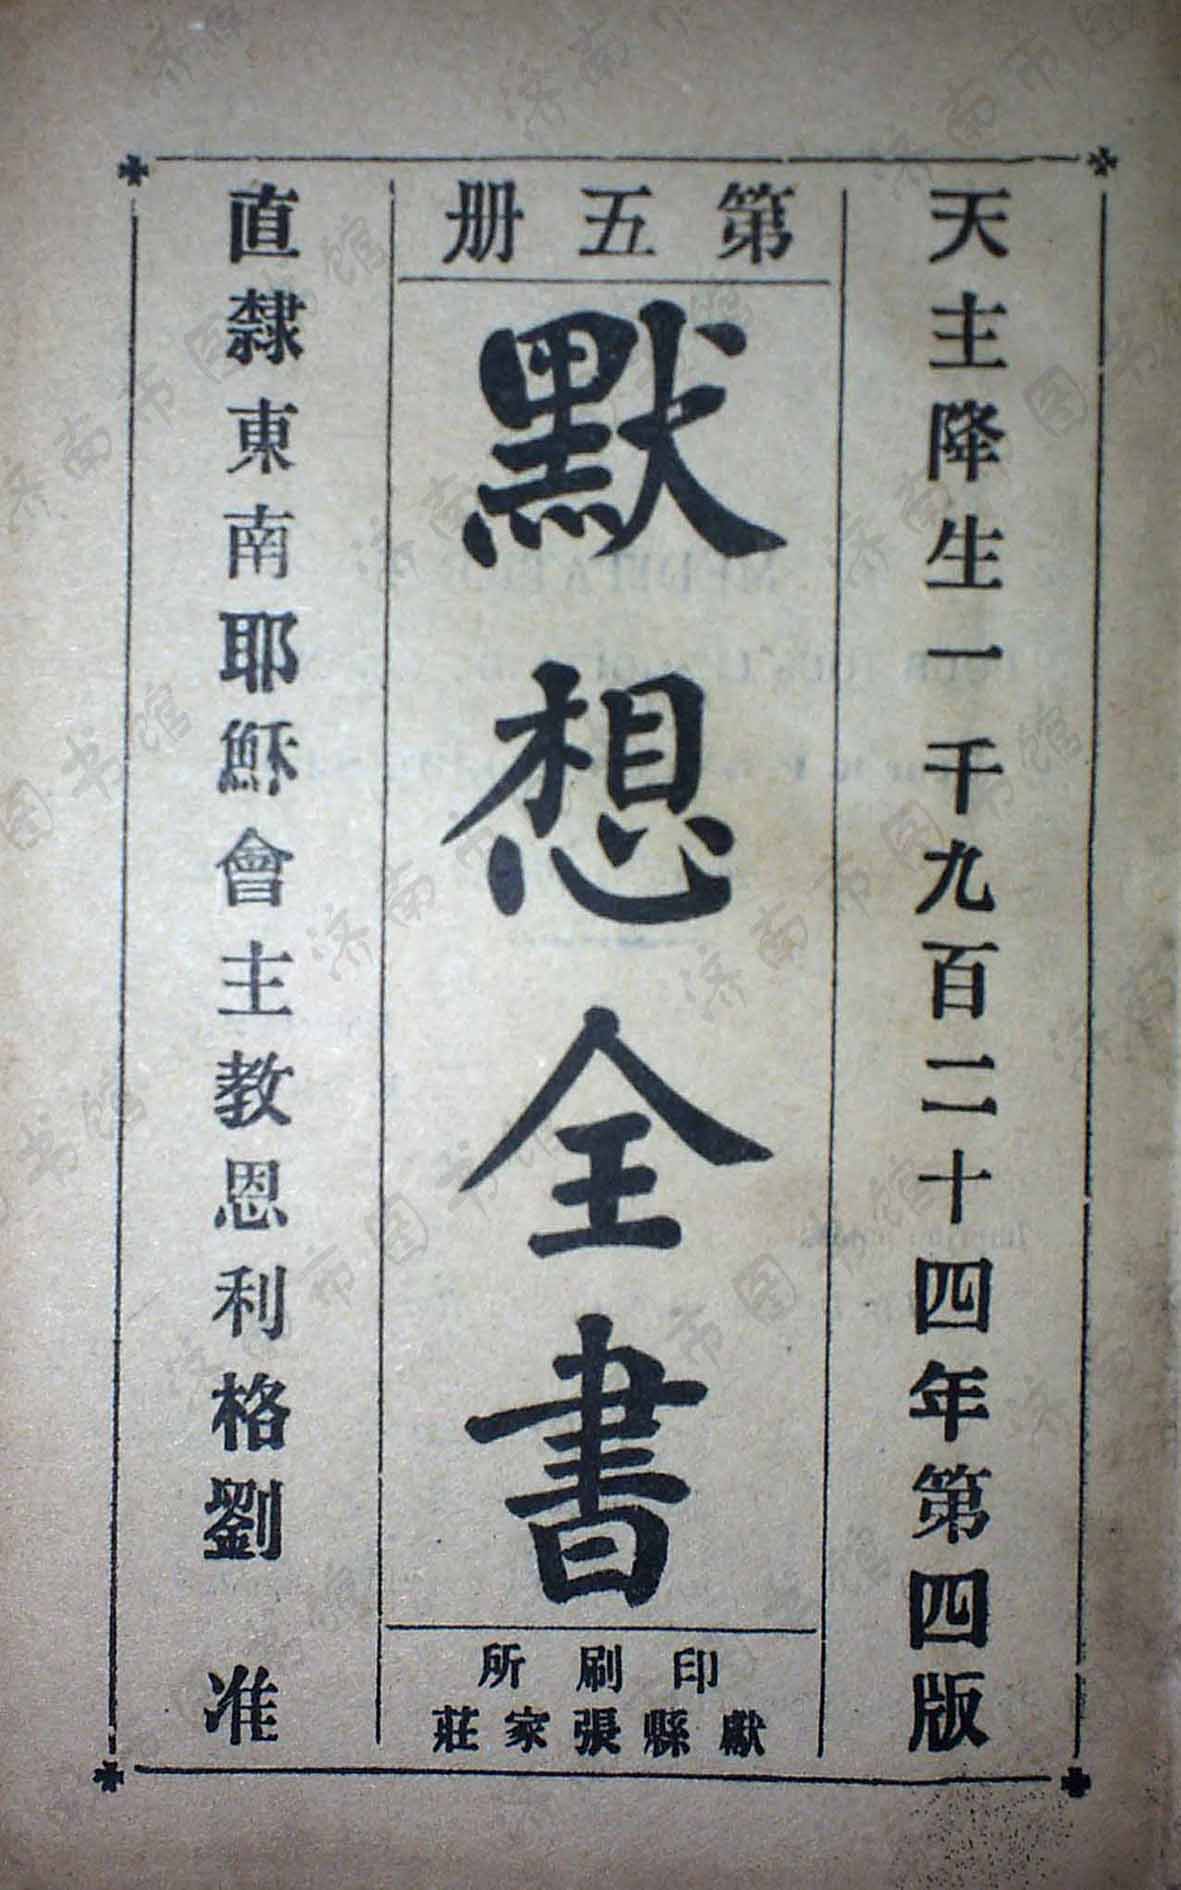 天主降生一千九百二十四年第四版
第五册
默想全書
印刷所
獻縣張家莊
直隸東南耶穌會主教恩利格劉 准
济南市图书馆